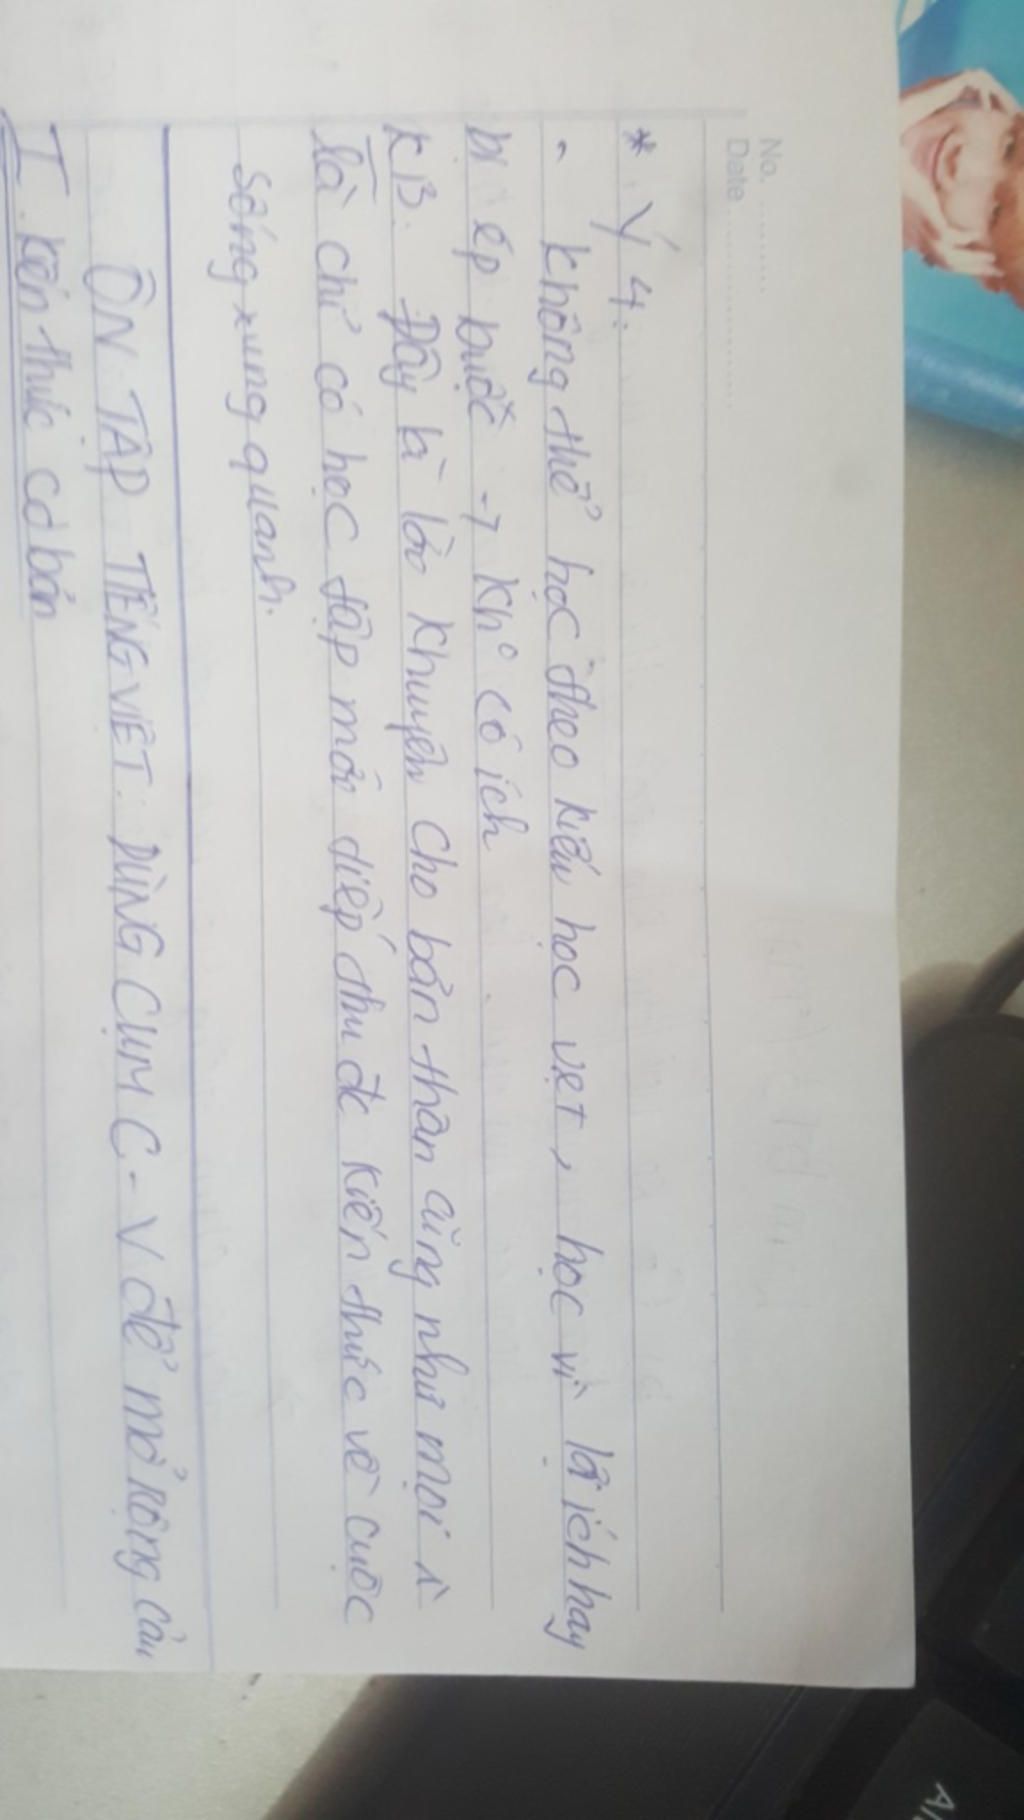 No. ..........
Date ....................
* Ý 4.
- Không thể học theo kiểu học vẹt, học vì lợi ích hay
bị ép buộc → kh° có ích
KB: Đây là lời khuyên cho bản thân cũng như mọi ng`
là chỉ có học tập mới tiếp thu đc kiến thức về cuộc
sống xung quanh.
ÔN TẬP TIẾNG VIỆT: DÙNG CỤM C-V ĐỂ MỞ RỘNG CÂU
I. Kiến thức cơ bản